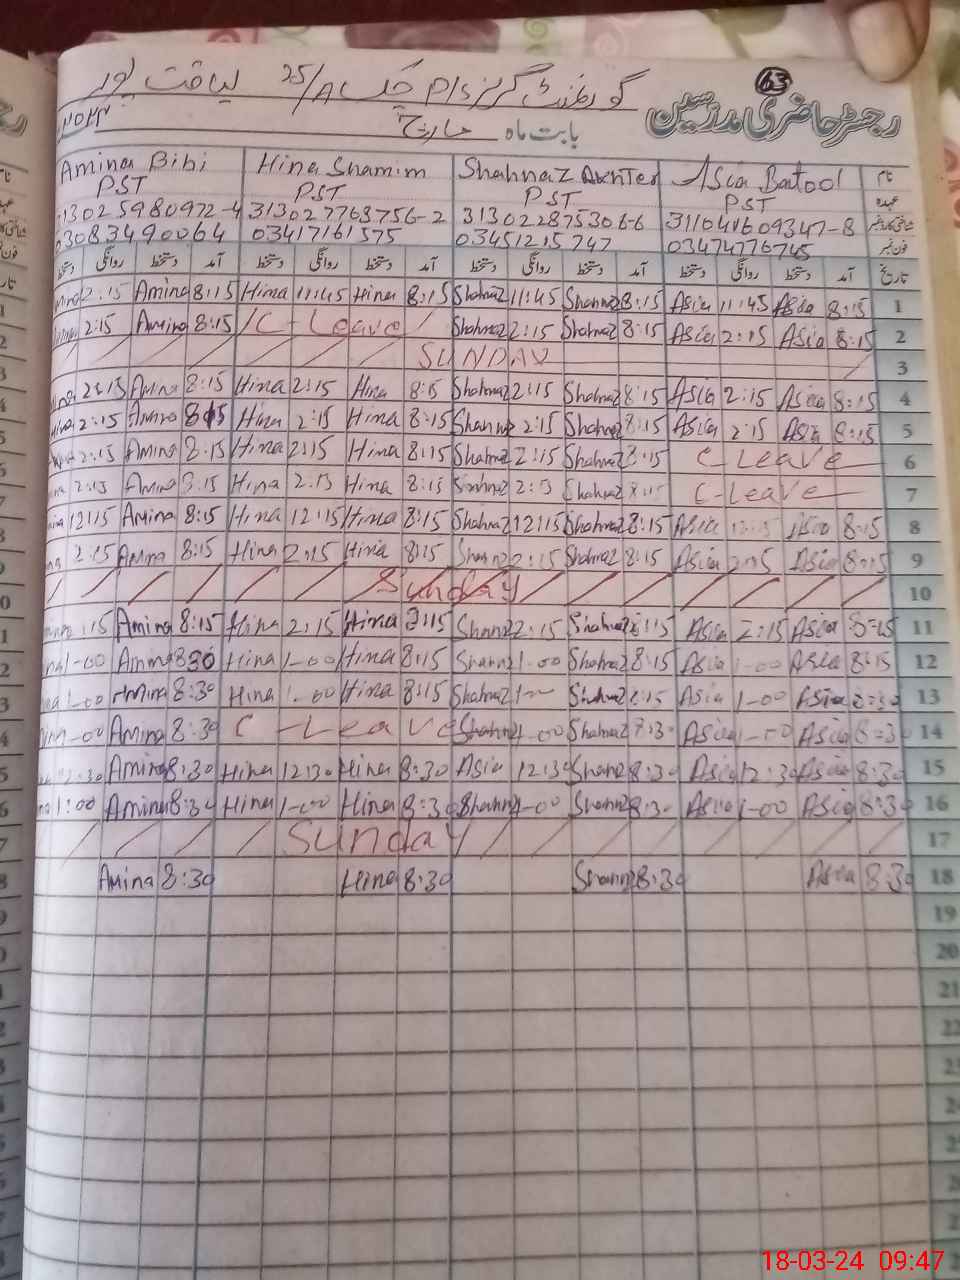 63
رجسٹر حاضری مدرسین
گورنمنٹ گرلز P/S چک 25/A لیاقت پور
بابت ماہ مارچ
نام Asia Batool Shahnaz Akhter Hina Shamim Amina Bibi
عہدہ PST PST PST PST
311041609347-8 313022875306-6 313027763756-2 313025980972-4
فون نمبر 03474776745 03451215747 03417161575 03083490064
تاریخ آمد دستخط روانگی دستخط آمد دستخط روانگی دستخط آمد دستخط روانگی دستخط آمد دستخط روانگی دستخط
2:15 Amina 8:15 Hina 11:45 Hina 8:15 Shahnaz 11:45 Shahnaz 8:15 Asia 11:45 Asia 8:15 1
2:15 Amina 8:15 C-Leave Shahnaz 2:15 Shahnaz 8:15 Asia 2:15 Asia 8:15 2
SUNDAY 3
2:15 Amina 8:15 Hina 2:15 Hina 8:15 Shahnaz 2:15 Shahnaz 8:15 Asia 2:15 Asia 8:15 4
2:15 Amina 8:15 Hina 2:15 Hina 8:15 Shahnaz 2:15 Shahnaz 8:15 Asia 2:15 Asia 8:15 5
2:15 Amina 8:15 Hina 2:15 Hina 8:15 Shahnaz 2:15 Shahnaz 8:15 C Leave 6
2:15 Amina 8:15 Hina 2:15 Hina 8:15 Shahnaz 2:15 Shahnaz 8:15 C-Leave 7
12:15 Amina 8:15 Hina 12:15 Hina 8:15 Shahnaz 12:15 Shahnaz 8:15 Asia 12:15 Asia 8:15 8
2:15 Amina 8:15 Hina 2:15 Hina 8:15 Shahnaz 2:15 Shahnaz 8:15 Asia 2:15 Asia 8:15 9
Sunday 10
Amina 8:15 Hina 2:15 Hina 8:15 Shahnaz 2:15 Shahnaz 8:15 Asia 2:15 Asia 8:15 11
1-00 Amina 8:30 Hina 1-00 Hina 8:15 Shahnaz 1-00 Shahnaz 8:15 Asia 1-00 Asia 8:15 12
1-00 Amina 8:30 Hina 1-00 Hina 8:15 Shahnaz Shahnaz 8:15 Asia 1-00 Asia 8:30 13
1-00 Amina 8:30 C-Leave Shahnaz 1-00 Shahnaz Asia 1-00 Asia 8:30 14
12:30 Amina 8:30 Hina 12:30 Hina 8:30 Asia 12:30 Shahnaz 8:30 Asia 12:30 Asia 8:30 15
1:00 Amina 8:30 Hina 1-00 Hina 8:30 Shahnaz 1-00 Shahnaz 8:30 Asia 1-00 Asia 8:30 16
Sunday 17
Amina 8:30 Hina 8:30 Shahnaz 8:30 Asia 8:30 18
19
20
21
22
23
18-03-24 09:47